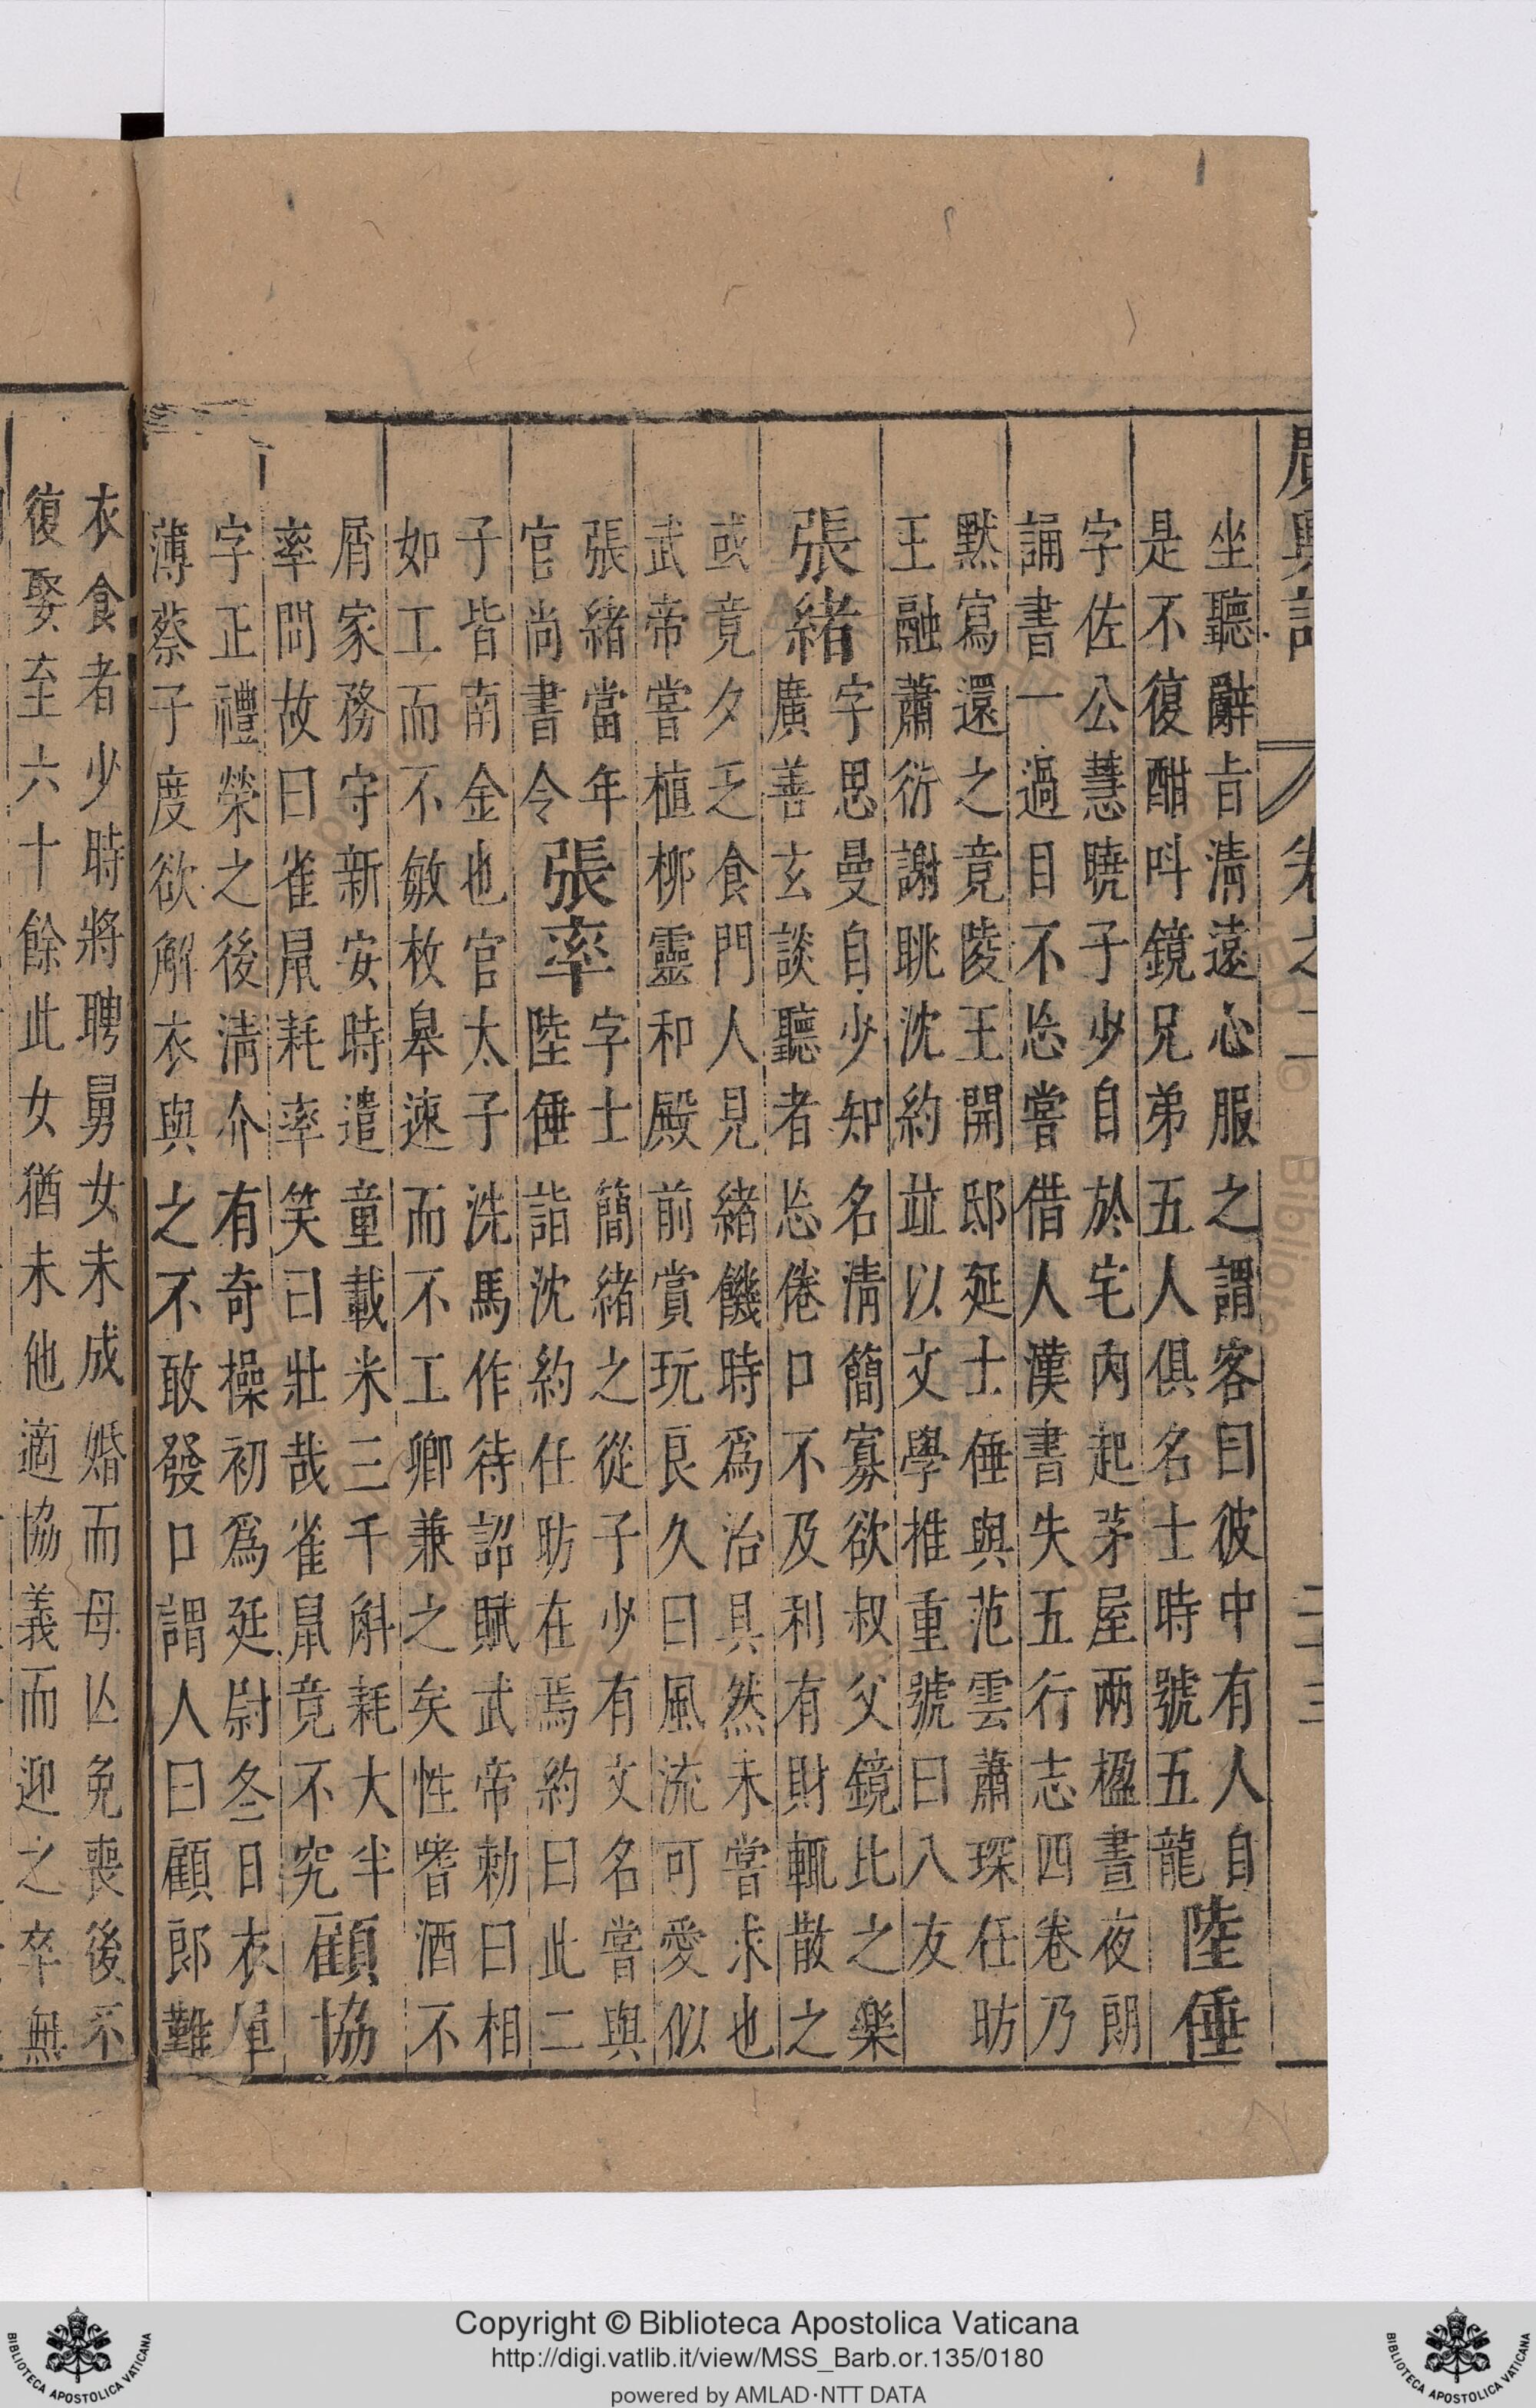 廣輿記 卷之二
坐聽辭旨清遠心服之謂客曰彼中有人自
是不復酣呌鏡兄弟五人俱名士時號五龍
陸倕
字佐公慧曉子少自於宅內起茅屋兩楹晝夜朗
誦書一過目不忘嘗借人漢書失五行志四卷乃
默寫還之竟陵王開邸延士倕與范雲蕭琛任昉
王融蕭衍謝眺沈約並以文學推重號曰八友
張緒
字思曼自少知名清簡寡欲叔父鏡比之樂
廣善玄談聽者忘倦口不及利有財輒散之
或竟夕乏食門人見緒饑時爲治具然未嘗求也
武帝嘗植栁靈和殿前賞玩良久曰風流可愛似
張緒當年
官尚書令
張率
字士簡緒之從子少有文名嘗與
陸倕詣沈約任昉在焉約曰此二
子皆南金也官太子洗馬作待詔賦武帝勅曰相
如工而不敏枚皋速而不工卿兼之矣性嗜酒不
屑家務守新安時遣童載米三千斛耗大半
率問故曰雀鼠耗率笑曰壯哉雀鼠竟不究
顧協
字正禮榮之後清介有奇操初爲延尉冬日衣單
薄蔡子度欲解衣與之不敢發口謂人曰顧郎難
衣食者少時將聘舅女未成婚而母亾免喪後不
復娶至六十餘此女猶未他適協義而迎之卒無
Copyright © Biblioteca Apostolica Vaticana
http://digi.vatlib.it/view/MSS_Barb.or.135/0180
powered by AMLAD·NTT DATA
BIBLIOTECA APOSTOLICA VATICANA
BIBLIOTECA APOSTOLICA VATICANA